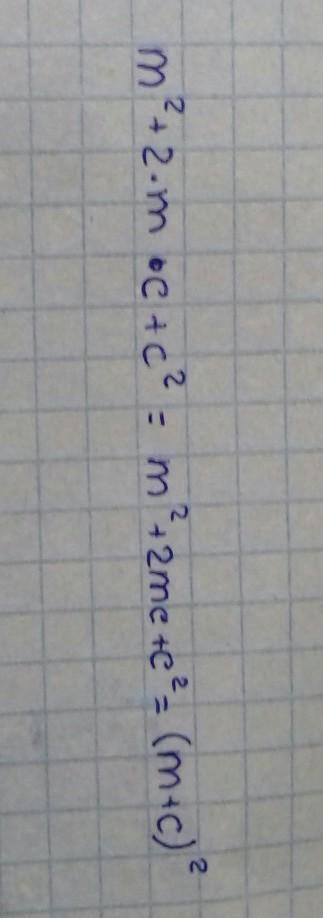 m² + 2·m·c + c² = m² + 2mc + c² = (m+c)²